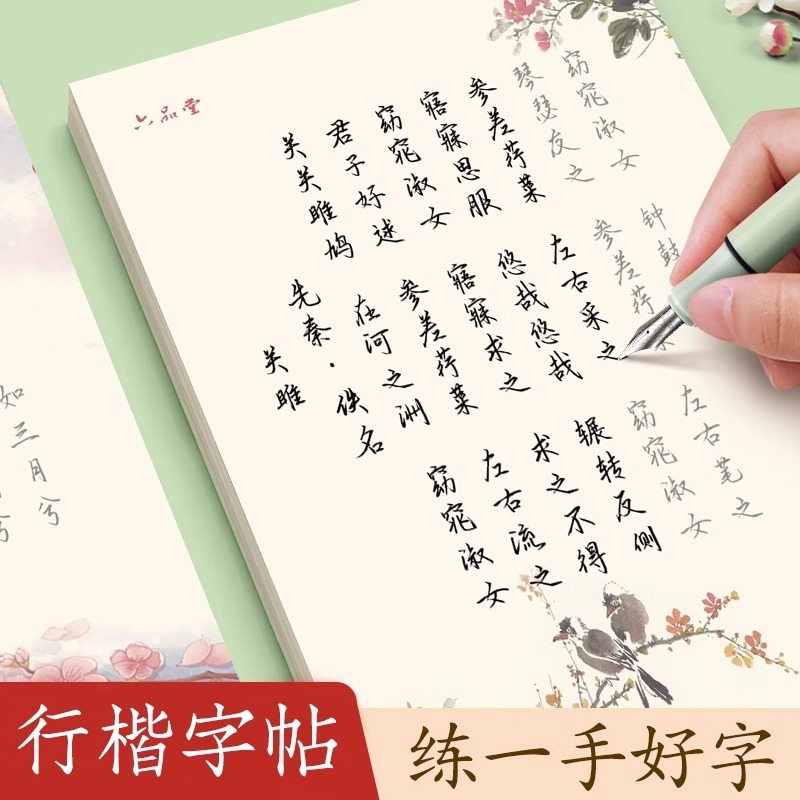 六品堂
关雎
先秦·佚名
关关雎鸠 在河之洲 窈窕淑女
君子好逑 参差荇菜 左右流之
窈窕淑女 寤寐求之 求之不得
寤寐思服 悠哉悠哉 辗转反侧
参差荇菜 左右采之 窈窕淑女
琴瑟友之 参差荇 左右芼之
窈窕淑女 钟鼓
如三月兮
兮
行楷字帖
练一手好字